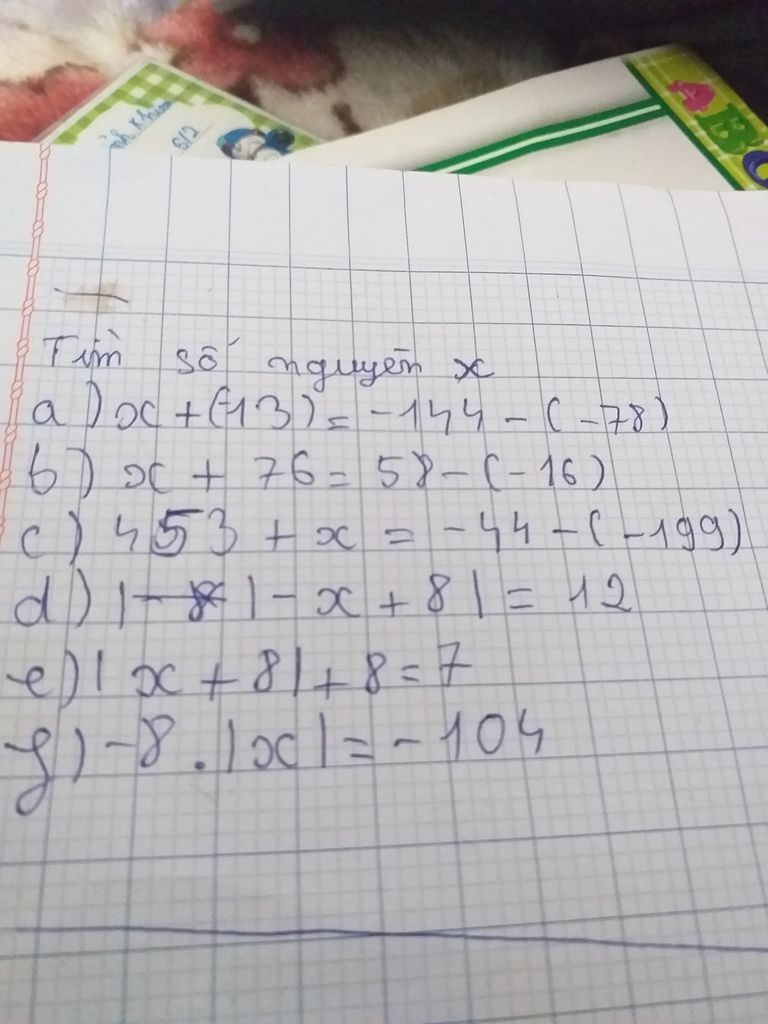 6/2
ABC
Tìm số nguyên x
a) x + (-13) = -144 - (-78)
b) x + 76 = 58 - (-16)
c) 453 + x = -44 - (-199)
d) |-x + 8| = 12
e) |x + 8| + 8 = 7
g) -8 . |x| = -104